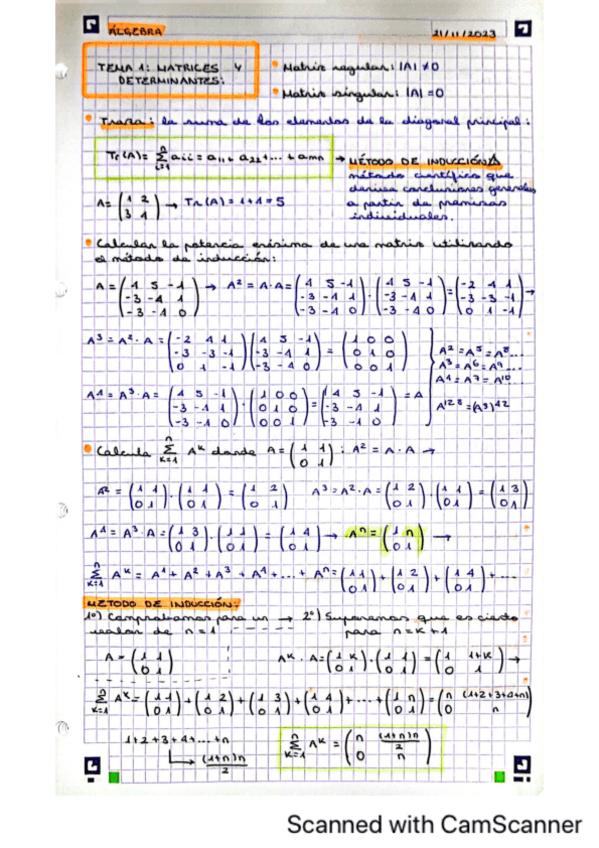 ÁLGEBRA 21/11/2023
TEMA 1: MATRICES Y DETERMINANTES:
• Matriz regular: |A| ≠ 0
• Matriz singular: |A| = 0
• Traza: la suma de los elementos de la diagonal principal:
Tr(A) = Σ(i=1, n) aii = a11 + a22 + ... + amn → MÉTODO DE INDUCCIÓN
método científico que
deriva conclusiones generales
a partir de premisas
individuales.
A = (1 2; 3 4) → Tr(A) = 1+4 = 5
• Calcular la potencia enésima de una matriz utilizando
el método de inducción:
A = (4 5 -1; -3 -4 1; -3 -4 0) → A² = A·A = (4 5 -1; -3 -4 1; -3 -4 0) · (4 5 -1; -3 -4 1; -3 -4 0) = (-2 4 1; -3 -3 -1; 0 1 -1) →
A³ = A²·A = (-2 4 1; -3 -3 -1; 0 1 -1) (4 5 -1; -3 -4 1; -3 -4 0) = (1 0 0; 0 1 0; 0 0 1)
A⁴ = A³·A = (4 5 -1; -3 -4 1; -3 -4 0) · (1 0 0; 0 1 0; 0 0 1) = (4 5 -1; -3 -4 1; -3 -4 0) = A
A² = A⁵ = A⁸...
A³ = A⁶ = A⁹...
A⁴ = A⁷ = A¹⁰
A¹²⁸ = (A³)⁴²
• Calcula Σ(k=1, n) Aᵏ donde A = (1 1; 0 1) : A² = A · A →
A² = (1 1; 0 1) · (1 1; 0 1) = (1 2; 0 1) A³ = A²·A = (1 2; 0 1) · (1 1; 0 1) = (1 3; 0 1)
A⁴ = A³·A = (1 3; 0 1) · (1 1; 0 1) = (1 4; 0 1) → Aⁿ = (1 n; 0 1) →
Σ(k=1, n) Aᵏ = A¹ + A² + A³ + A⁴ + ... + Aⁿ = (1 1; 0 1) + (1 2; 0 1) + (1 4; 0 1) + ...
MÉTODO DE INDUCCIÓN:
1º) Comprobamos para un valor de n = 1
→ 2º) Suponemos que es cierto para n = k + 1
A = (1 1; 0 1) Aᵏ · A = (1 k; 0 1) · (1 1; 0 1) = (1 1+k; 0 1) →
Σ(k=1, n) Aᵏ = (1 1; 0 1) + (1 2; 0 1) + (1 3; 0 1) + (1 4; 0 1) + ... + (1 n; 0 1) = (n (1+2+3+4+n); 0 n)
1+2+3+4+...+n
(1+n)n/2
Σ(k=1, n) Aᵏ = (n (1+n)n/2; 0 n)
Scanned with CamScanner